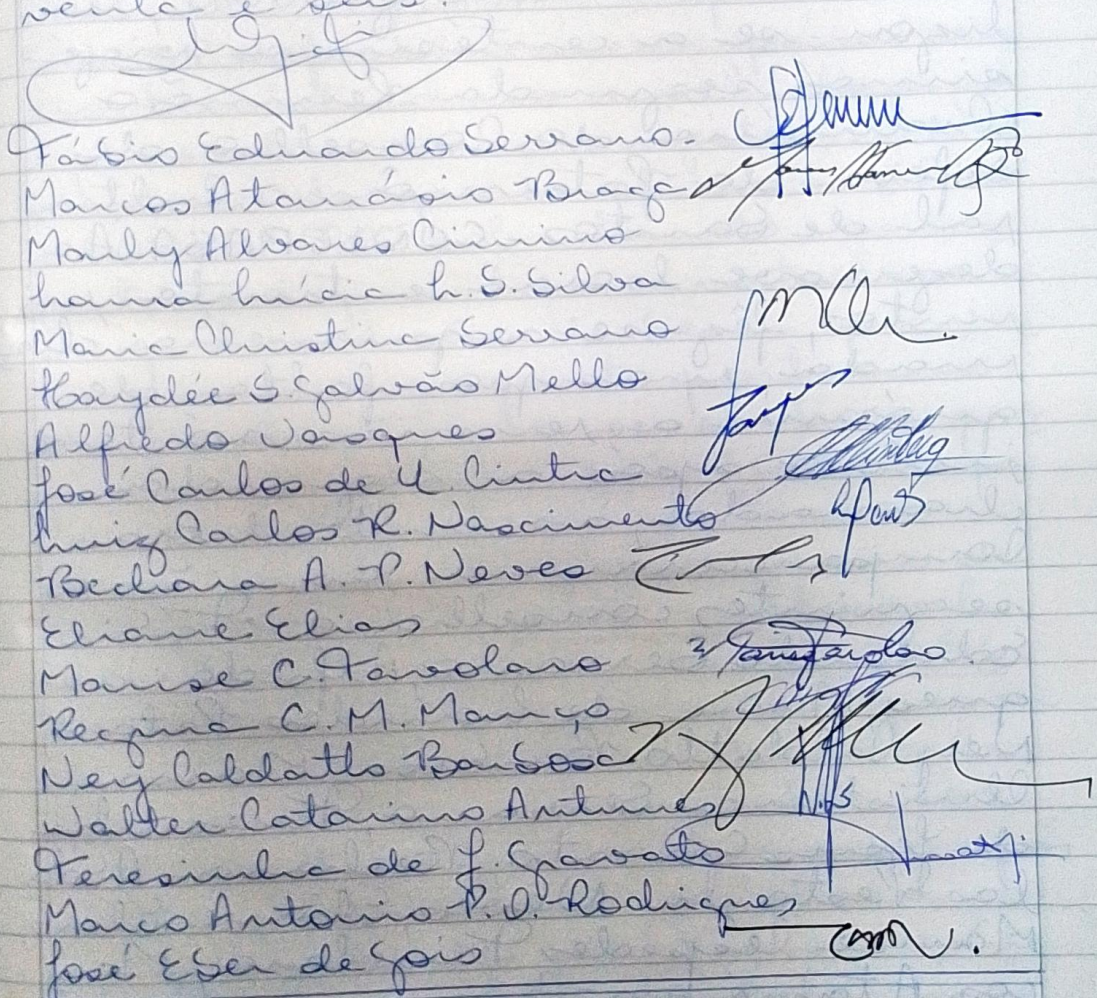 venta e seis.
Fábio Eduardo Serrano.
Marcos Atanásio Braga
Marly Alvares Cimino
Lúcia L. S. Silva
Maria Christina Serrano
Haydée S. Galvão Mello
Alfredo Vasques
José Carlos de U. Cintra
Luiz Carlos R. Nascimento
Bechara A. P. Neves
Eliane Elias
Marise C. Tavolaro
Regina C. M. Março
Ney Caldatto Barbosa
Walter Catarino Antunes
Teresinha de J. Gravato
Marco Antonio P. D. Rodrigues
José Eber de Gois